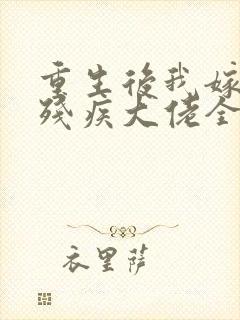 重生後我嫁
殘疾大佬全
衣里薩